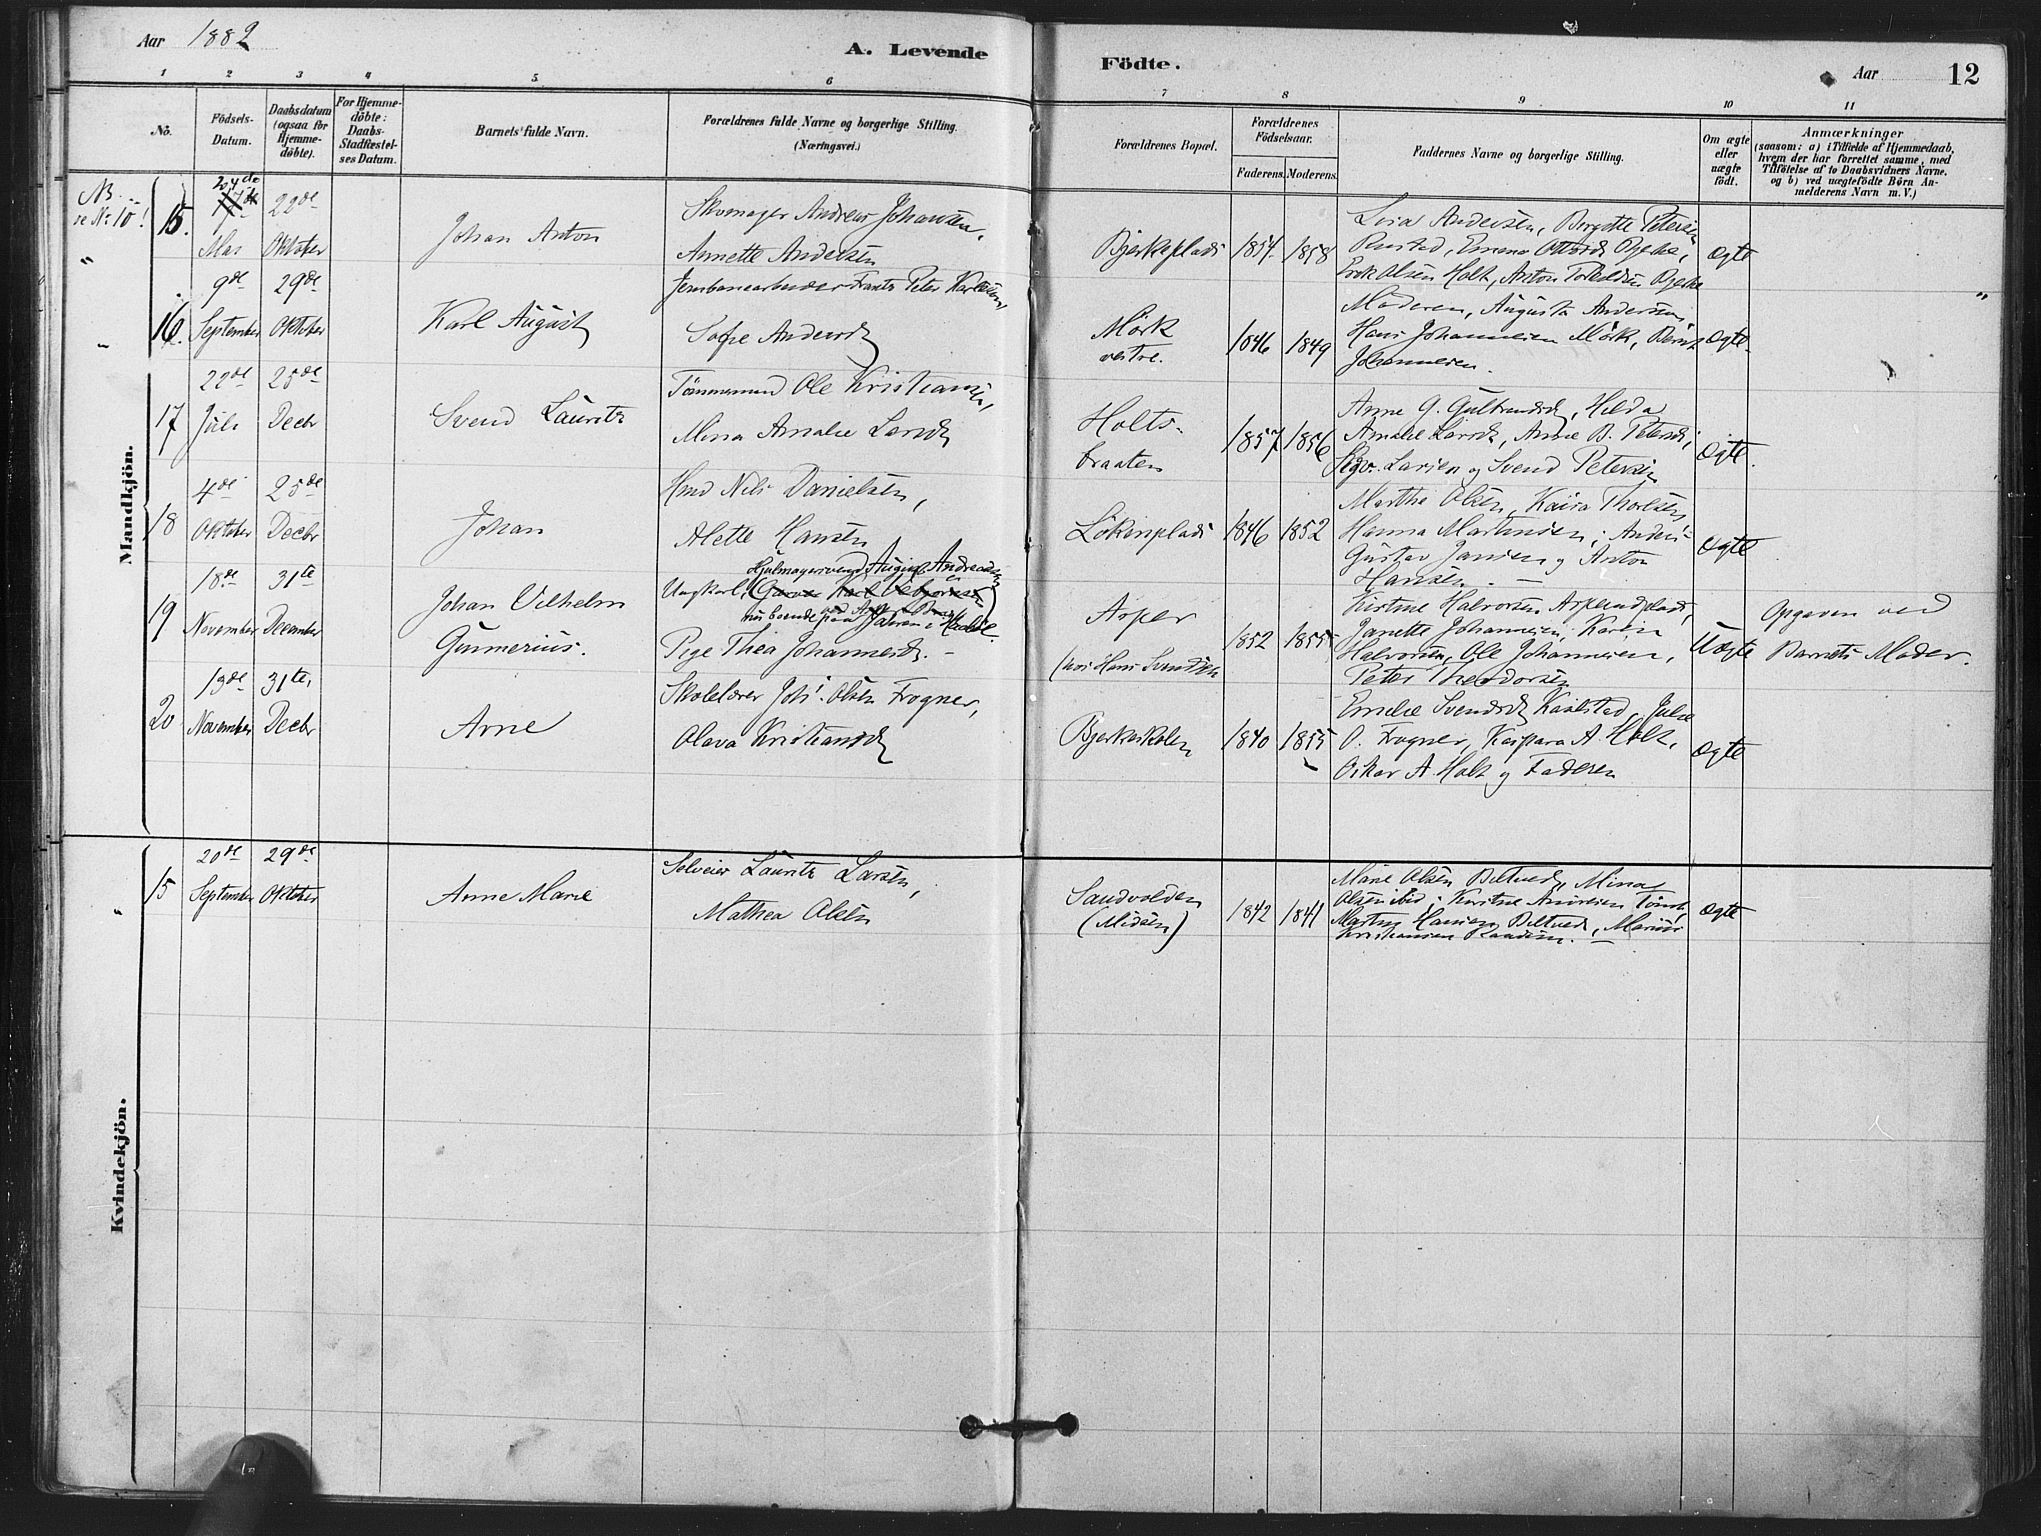 Aar 1882
A. Levende
Födte.
Aar
12
1 2 3 4 5 6 7 8 9 10 11
No.
Födsels-
Datum.
Daabsdatum
(ogsaa for
Hjemme-
døbte).
For Hjemme-
døbte:
Daabs-
Stadfæstel-
ses Datum.
Barnets fulde Navn.
Forældrenes fulde Navne og borgerlige Stilling.
(Næringsvei.)
Forældrenes Bopæl.
Forældrenes
Födselsaar.
Faderens. Moderens.
Faddernes Navne og borgerlige Stilling.
Om ægte
eller
uægte
födt.
Anmærkninger
(saasom: a) i Tilfælde af Hjemmedaab,
hvem der har forrettet samme, med
Tilföielse af to Daabsvidners Navne,
og b) ved uægtefödte Börn An-
melderens Navn m.V.)
Mandkjön.
NB.
se No 10!
15.
204de
17de
Mai
22de
Oktober
Johan Anton
Skomager Andreas Johansen,
Annette Andersen
Bjerkeplads
1854
1858
Lina Andersen, Birgitte Petersen
Emma
Erik Olsen Holt, Anton
Ægte
16.
9de
September
29de
Oktober
Karl August
Jernbanearbeider Frants Peter Karlsen,
Sofie Andersd
Mørk
vestre.
1846
1849
Moderen, Augusta Andersen
Hans Johannesen Mørk, Bernt
Johannesen.
Ægte
17
22de
Juli
25de
Decbr
Svend Lauritz
Tømmermand Ole Kristiansen,
Mina Amalie Larsd
Holts-
braaten
1857
1856
Anne G. Gulbrandsd, Hilda
Amalie Larsd, Anne B. Petersd,
Larsen og Svend Petersen
Ægte.
18
4de
Oktober
25de
Decbr
Johan
Hmd Nils Danielsen,
Alette Hansen
Løkenplads
1846
1852
Marthe Olsen, Kaisa Thorsen,
Hanna Martinsen, Anders
Gustav Jansen og Anton
Hansen. —
Ægte
19
18de
November
31te
December
Johan Vilhelm
Gunnerius.
Hjulmagersvend August Andreasen
Ungkarl,
nu boende paa
Pige Thea Johannesd. –
Asper
(hos Hans Svendsen
1852
1855
Kirstine Halvorsen Asperudplads,
Janette Johannesen, Karen
Halvorsen, Ole Johannesen,
Peter Theodorsen
Uægte
Opgaven ved
Barnets Moder.
20
13de
November
31te,
Decbr
Arne
Skolelærer Johs. Olsen Frogner,
Olava Kristiansd
Bjerkeskolen
1840
1855
Emelie Svendsd Kaalstad, Julie
O. Frogner, Kaspara A. Holt,
Oskar A. Holt og Faderen
Ægte
Kvindekjön.
15
20de
September
29de
Oktober
Anne Marie
Selveier Lauritz Larsen,
Mathea Olsen
Sandvolden
(Midsen)
1842
1841
Marie Olsen Biltved, Mina
Olsen ibid, Kirstine Andresen
Martin Hansen Biltved, Marius
Kristiansen
Ægte